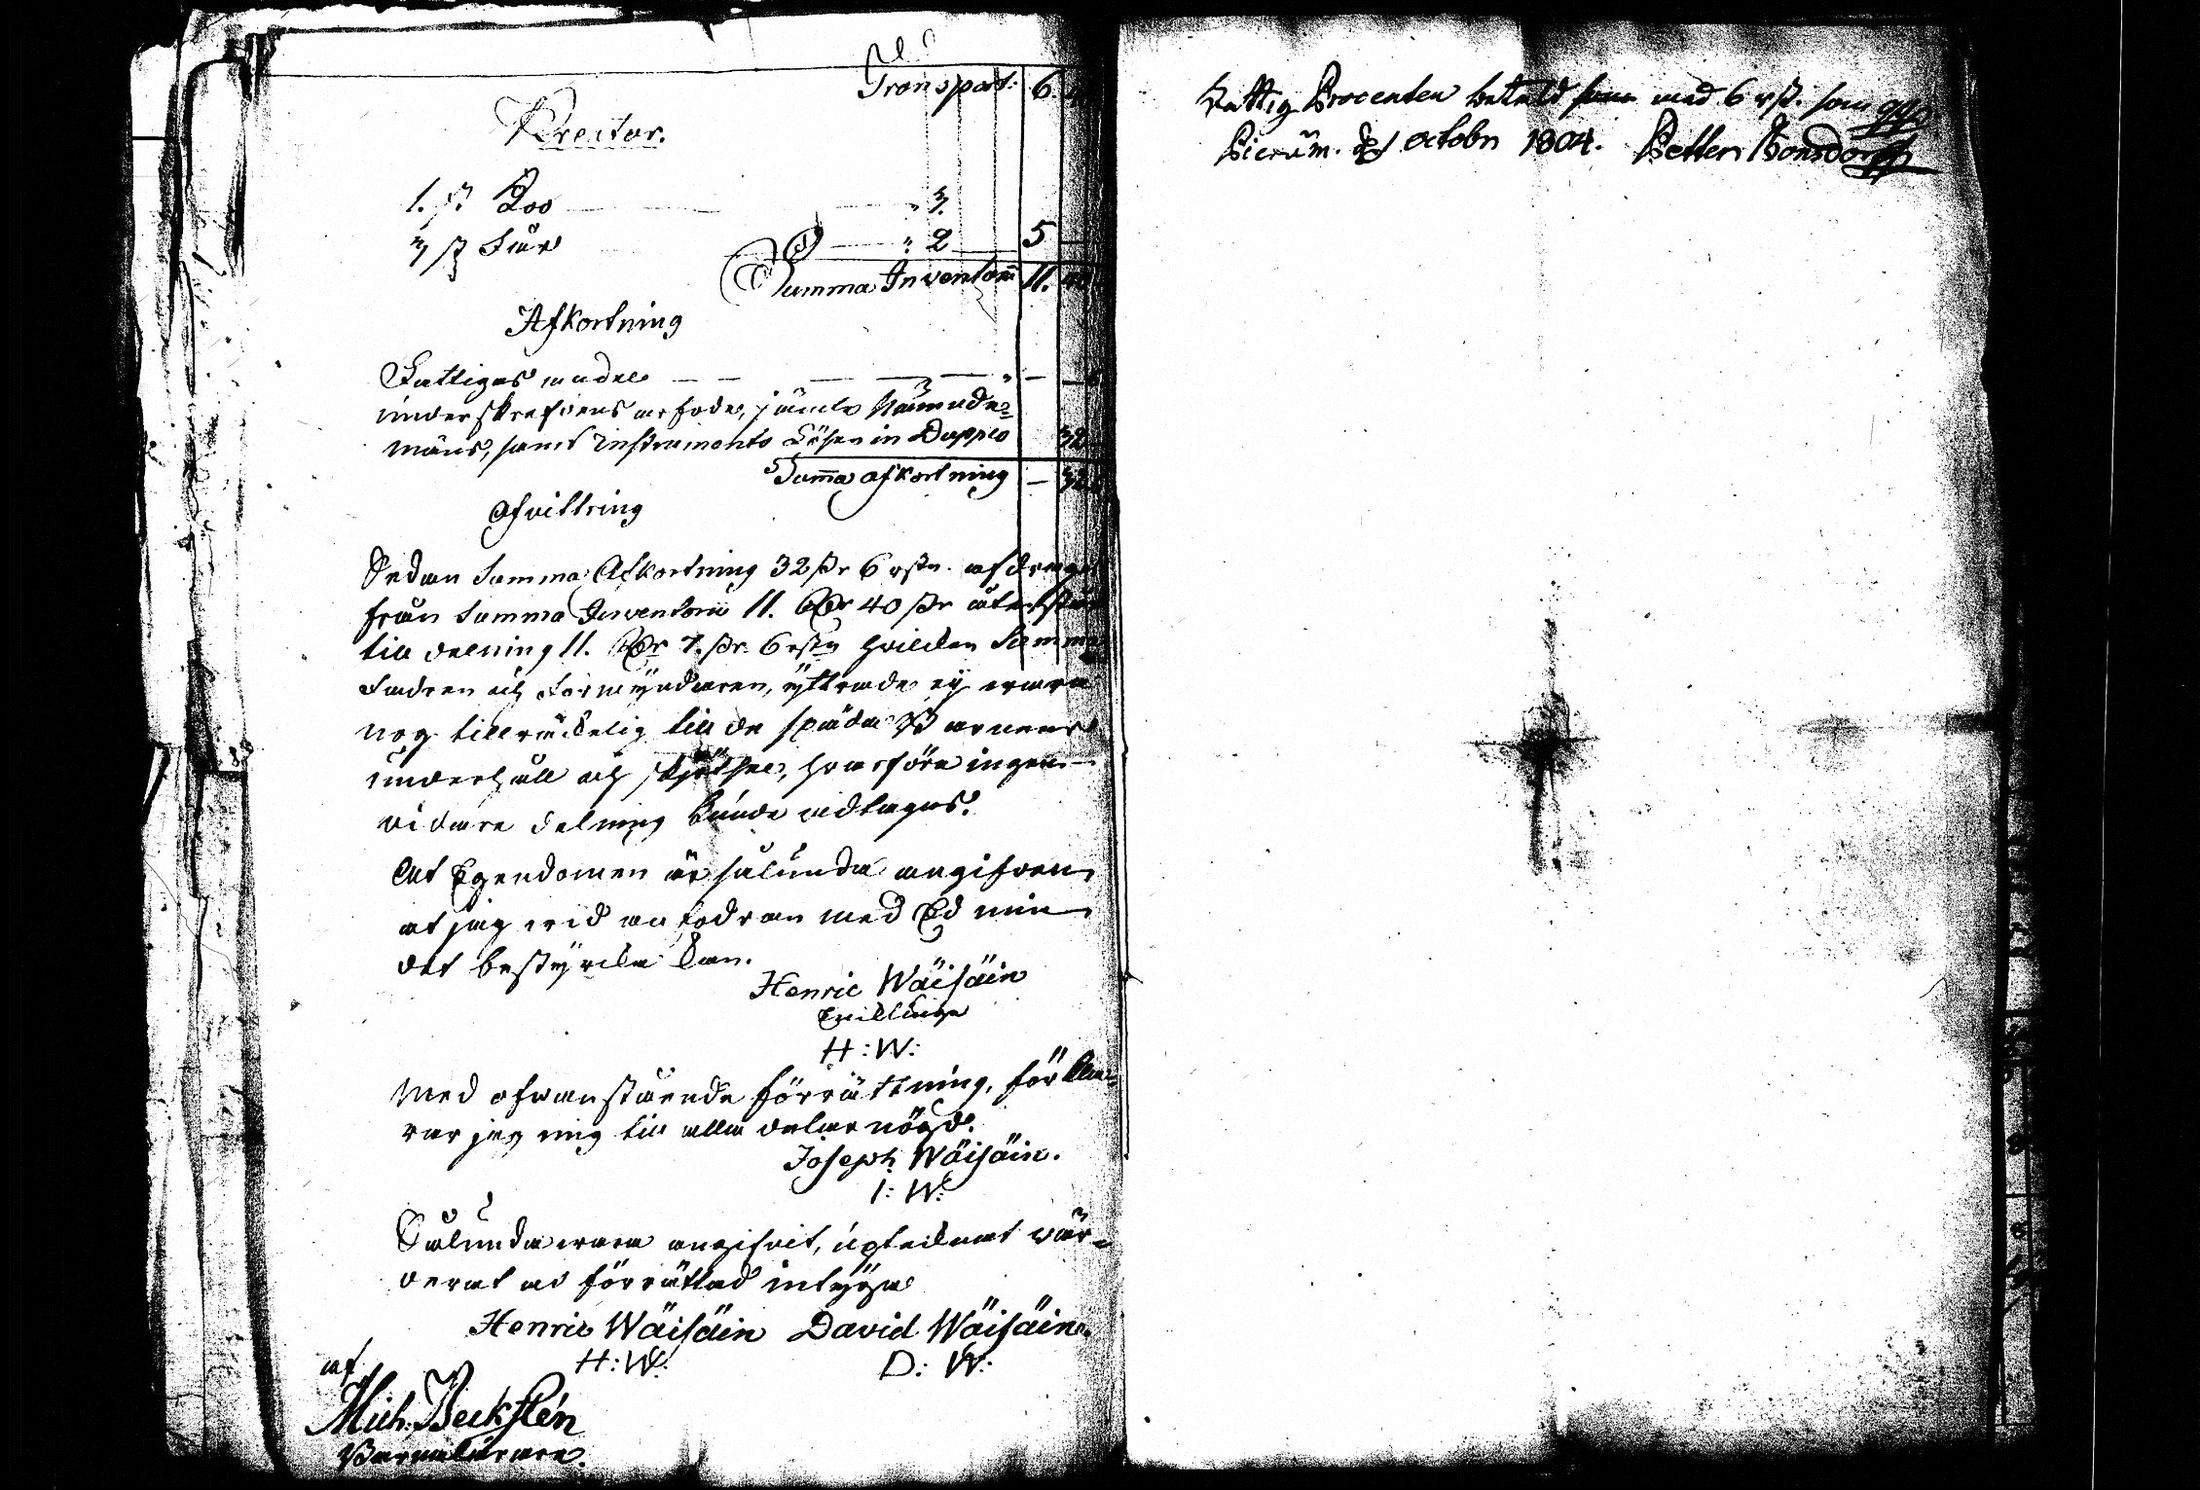 Transport: 6. 40
Kreitur.
1. st. Koo " 3.
3 st Fåår " 2 5 —
Summa Inventarii 11. 40
Afkortning
Fattiges andel — — — — — " — 6
underskrefvens arfvode, jämte Nämnde-
mäns, samt instruments Lösen in Duplo 32
Summa afkortning — 32.6
Afvittring
Sedan Summa Afkortning 32 s:r 6 rst:n afdrages
från Summa Inventarii 11. R:dr 40 s:r återstår
till delning 11. R:dr 7. s:r 6 rst:n hvilcken Summa
Fadren och Förmyndaren, yttrade ey wara
nog tillräckelig till de späda Barnens
underhåll och skjötsel, hvarföre ingen
vidare delning kunde vidtagas.
At Egendomen är sålunda angifven,
at jag wid anfodran med Ed min
det bestyrcka kan.
Henric Wäisäin
Enkling
H: W:
Med ofwanstående förrättning, förkla-
rar jag mig till alla delar nögd.
Joseph Wäisäin.
I: W:
Sålunda wara angifvit, uptecknat vär-
derat och förrättad intyga
Henric Wäisäin David Wäisäin.
H: W: D: W:
af
Mich. Beckstén
Barnalärare.
Fattig Procenten betald med 6 rst. som
Octobr 1804. Petter Bonsdorff